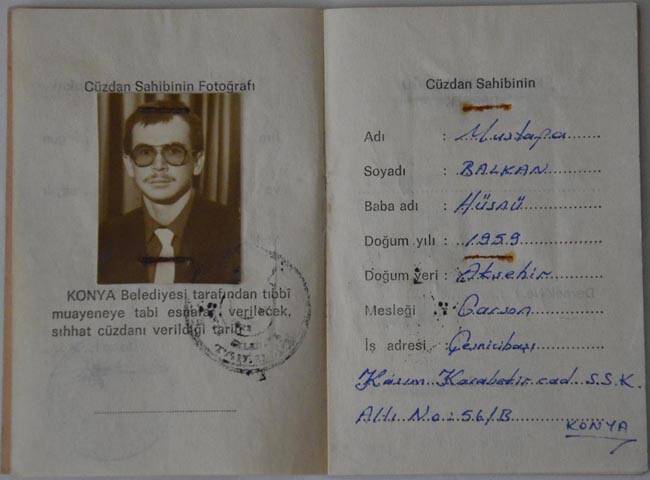 Cüzdan Sahibinin Fotoğrafı
KONYA Belediyesi tarafından tıbbî
muayeneye tabi esnafa verilecek,
sıhhat cüzdanı verildiği tarih
Cüzdan Sahibinin
Adı : Mustafa
Soyadı : BALKAN
Baba adı : Hüsnü
Doğum yılı : 1959
Doğum yeri : Akşehir
Mesleği : Garson
İş adresi : Çeşnicibaşı
Kâzım Karabekir cad. S.S.K.
Altı No: 56/B
KONYA